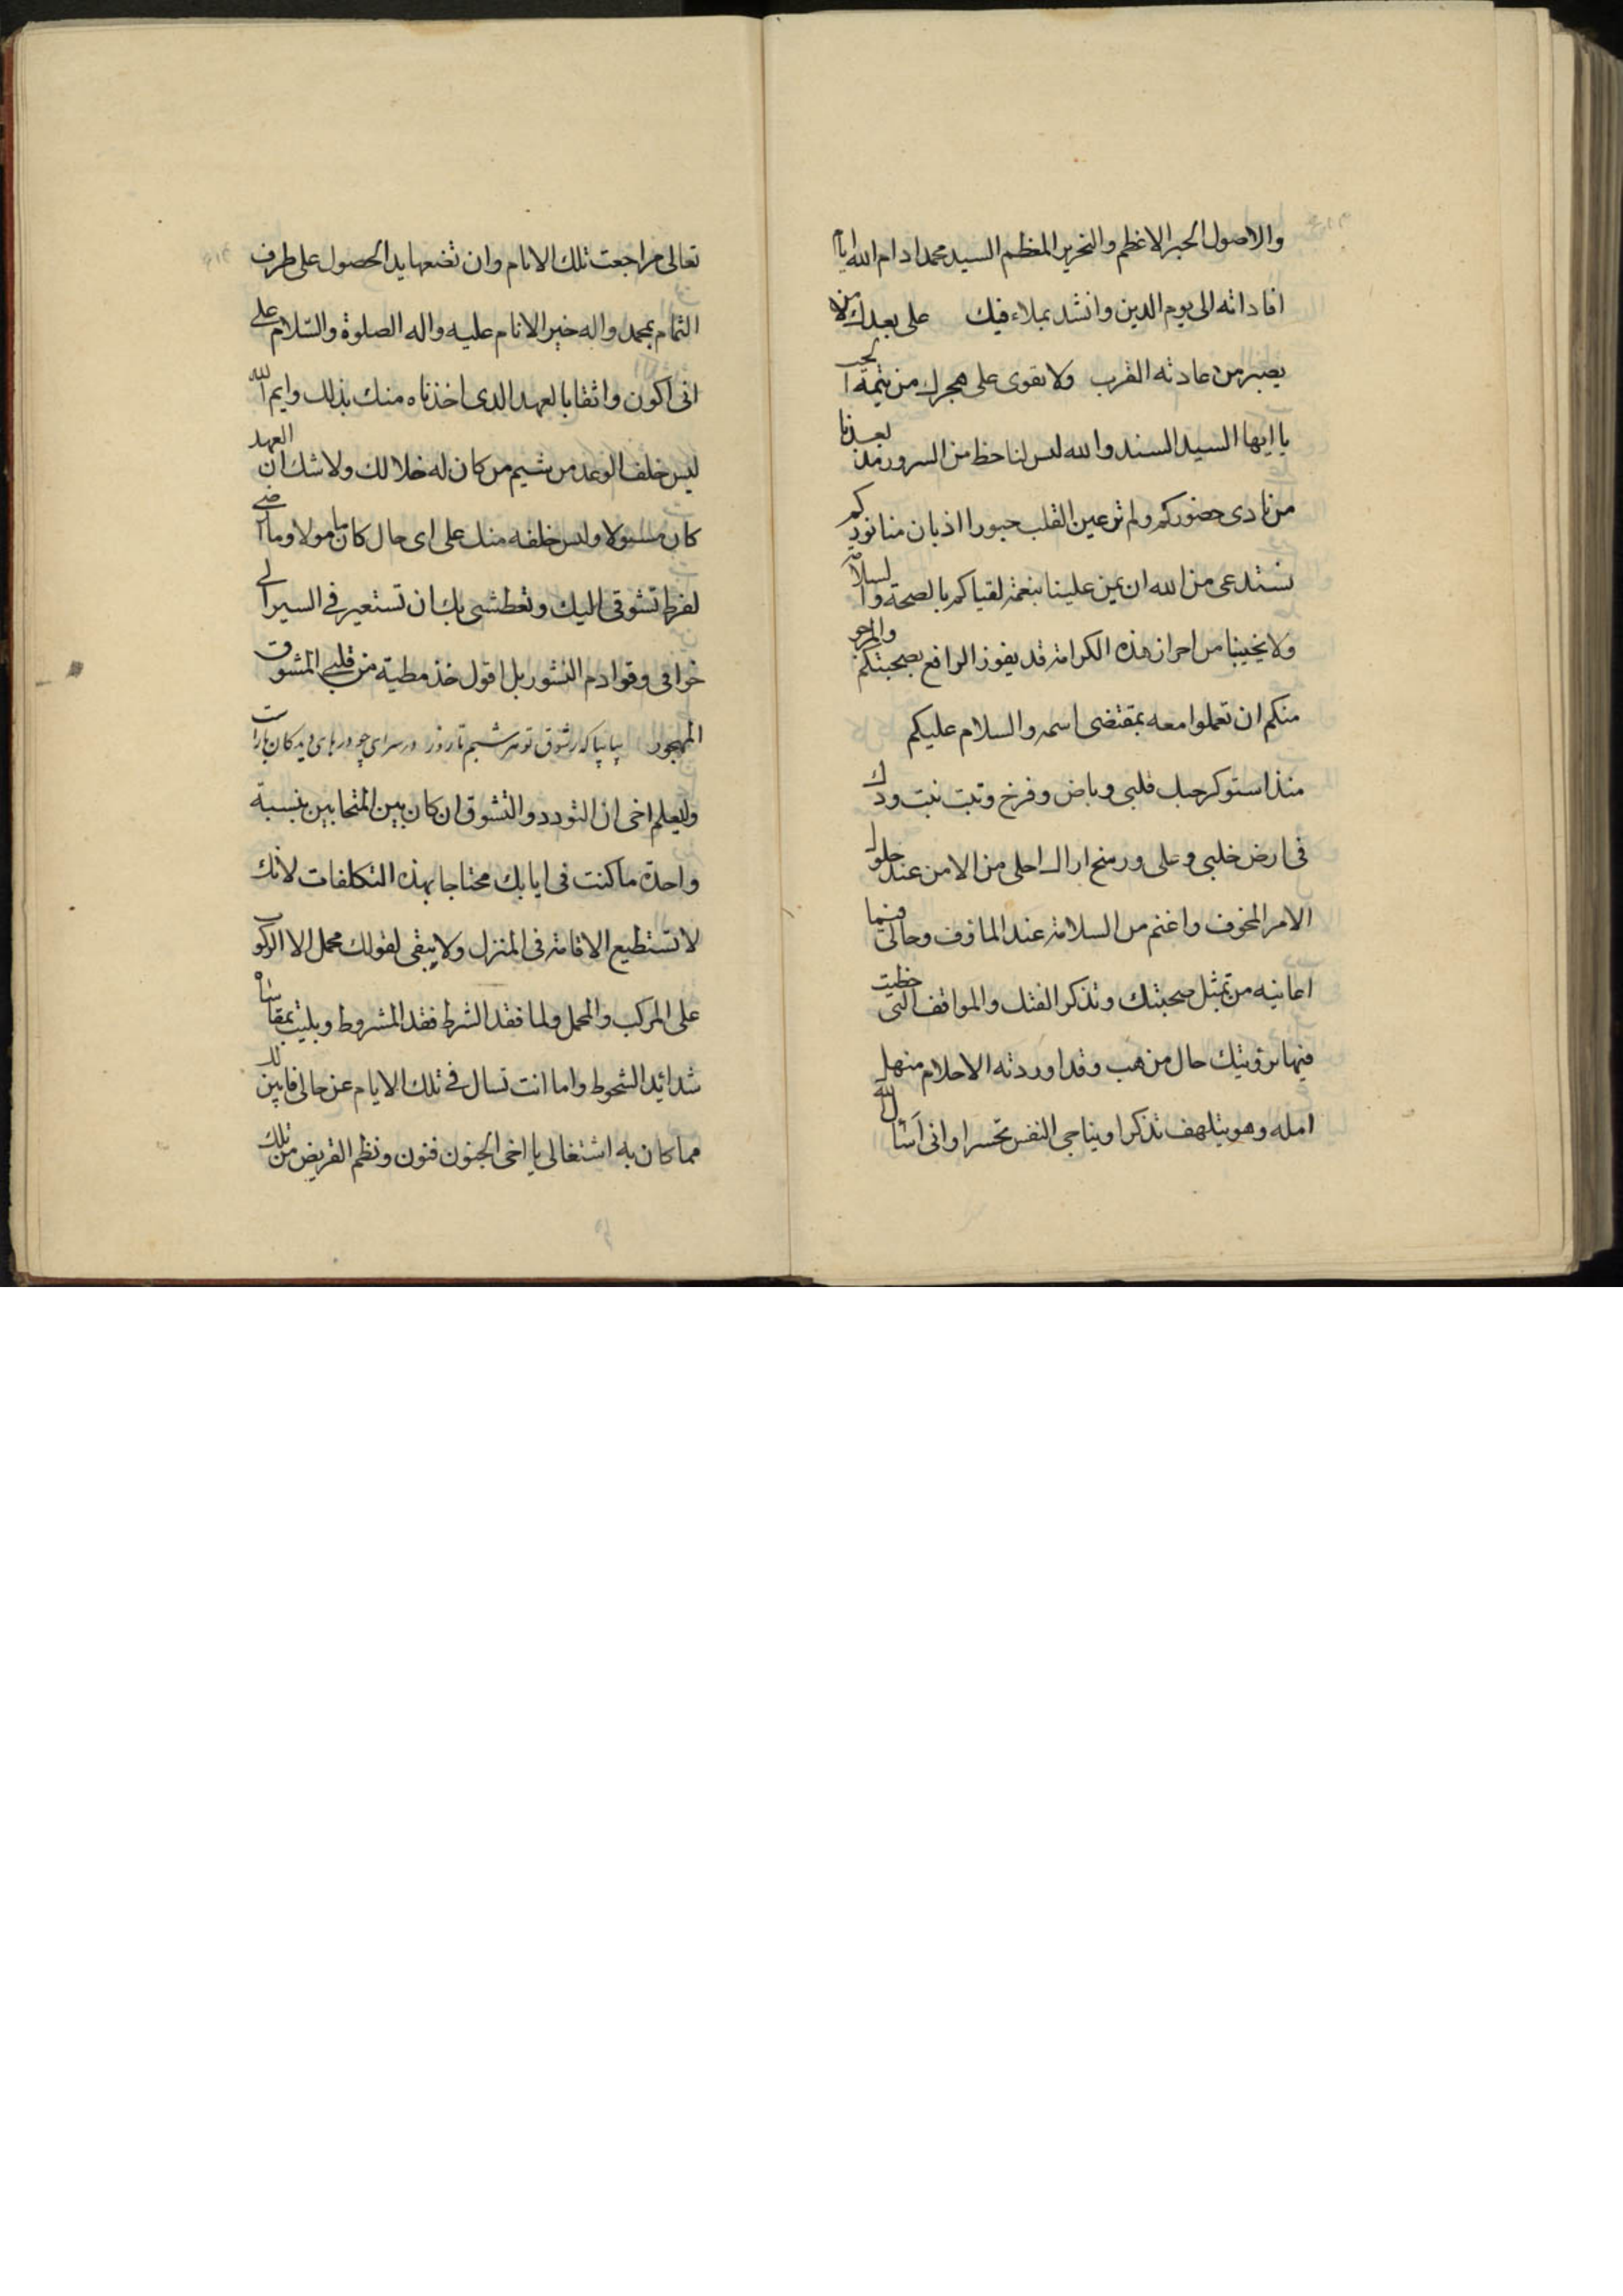 والاصول الحبر الاعظم والنحرير المعظم السيد محمد ادام الله ايام
افاداته الى يوم الدين وانشد بملاء فيك على بعدك من لا
يصبر من عادته القرب ولا يقوى على هجرك من يتمه الحب
يا ايها السيد السند والله ليس لنا حظ من السرور مذ بعدنا
من نادى حضوركم ولم تر عين القلب حبورا اذ بان منا نوركم
نستدعى من الله ان يمن علينا بنعمة لقياكم بالصحة والسلامة
ولا يخيبنا من احراز هذه الكرامة قد يفوز الرافع بصحبتكم والمرجو
منكم ان تعملوا معه بمقتضى اسمه والسلام عليكم
منذ استوكر حبك قلبى وباض وفرخ وتبت نبت ودك
فى ارض خلبى وعلى ورسخ اراك احلى من الامن عند حلول
الامر المخوف واغنم من السلامة عند الماؤف وحالى فيما
اعانيه من تمثل صحبتك وتذكر الفتك والمواقف التى حظيت
فيها برؤيتك حال من هب وقد اوردته الاحلام منهل
امله وهو يتلهف تذكرا ويناجى النفس تحسرا وانى اسأل الله
تعالى مراجعت تلك الانام وان تضعها يد الحصول على طرف
الثمام بمحمد واله خير الانام عليه واله الصلوة والسلام على
انى اكون واثقا بالعهد الذى اخذناه منك بذلك وايم الله
ليس خلف الوعد من شيم من كان له خلا لك ولا شك ان العهد
كان مسئولا وليس خلفه منك على اى حال كان مامولا وما ارضى
لفرط تشوقى اليك وتعطشى بك ان تستعير فى السير الى
خوافى وقوادم النسور بل اقول خذ مطية من قلبى المشوق
المهجور بيا بيا كه زشوق تو هر شبم تا روز در سراى چو درهاى ديدكان بازاست
وليعلم اخى ان التودد والتشوق ان كان بين المتحابين بنسبة
واحدة ما كنت فى ايابك محتاجا بهذه التكلفات لانك
لا تستطيع الاقامة فى المنزل ولا يبقى لقولك محمل الا الركوب
على المركب والمحمل ولما فقد الشرط فقد المشروط وبليت بمقاساة
شدائد الشحوط واما انت تسال فى تلك الايام عن حالى فابين لك
مما كان به اشتغالى يا اخى الجنون فنون ونظم القريض من تلك